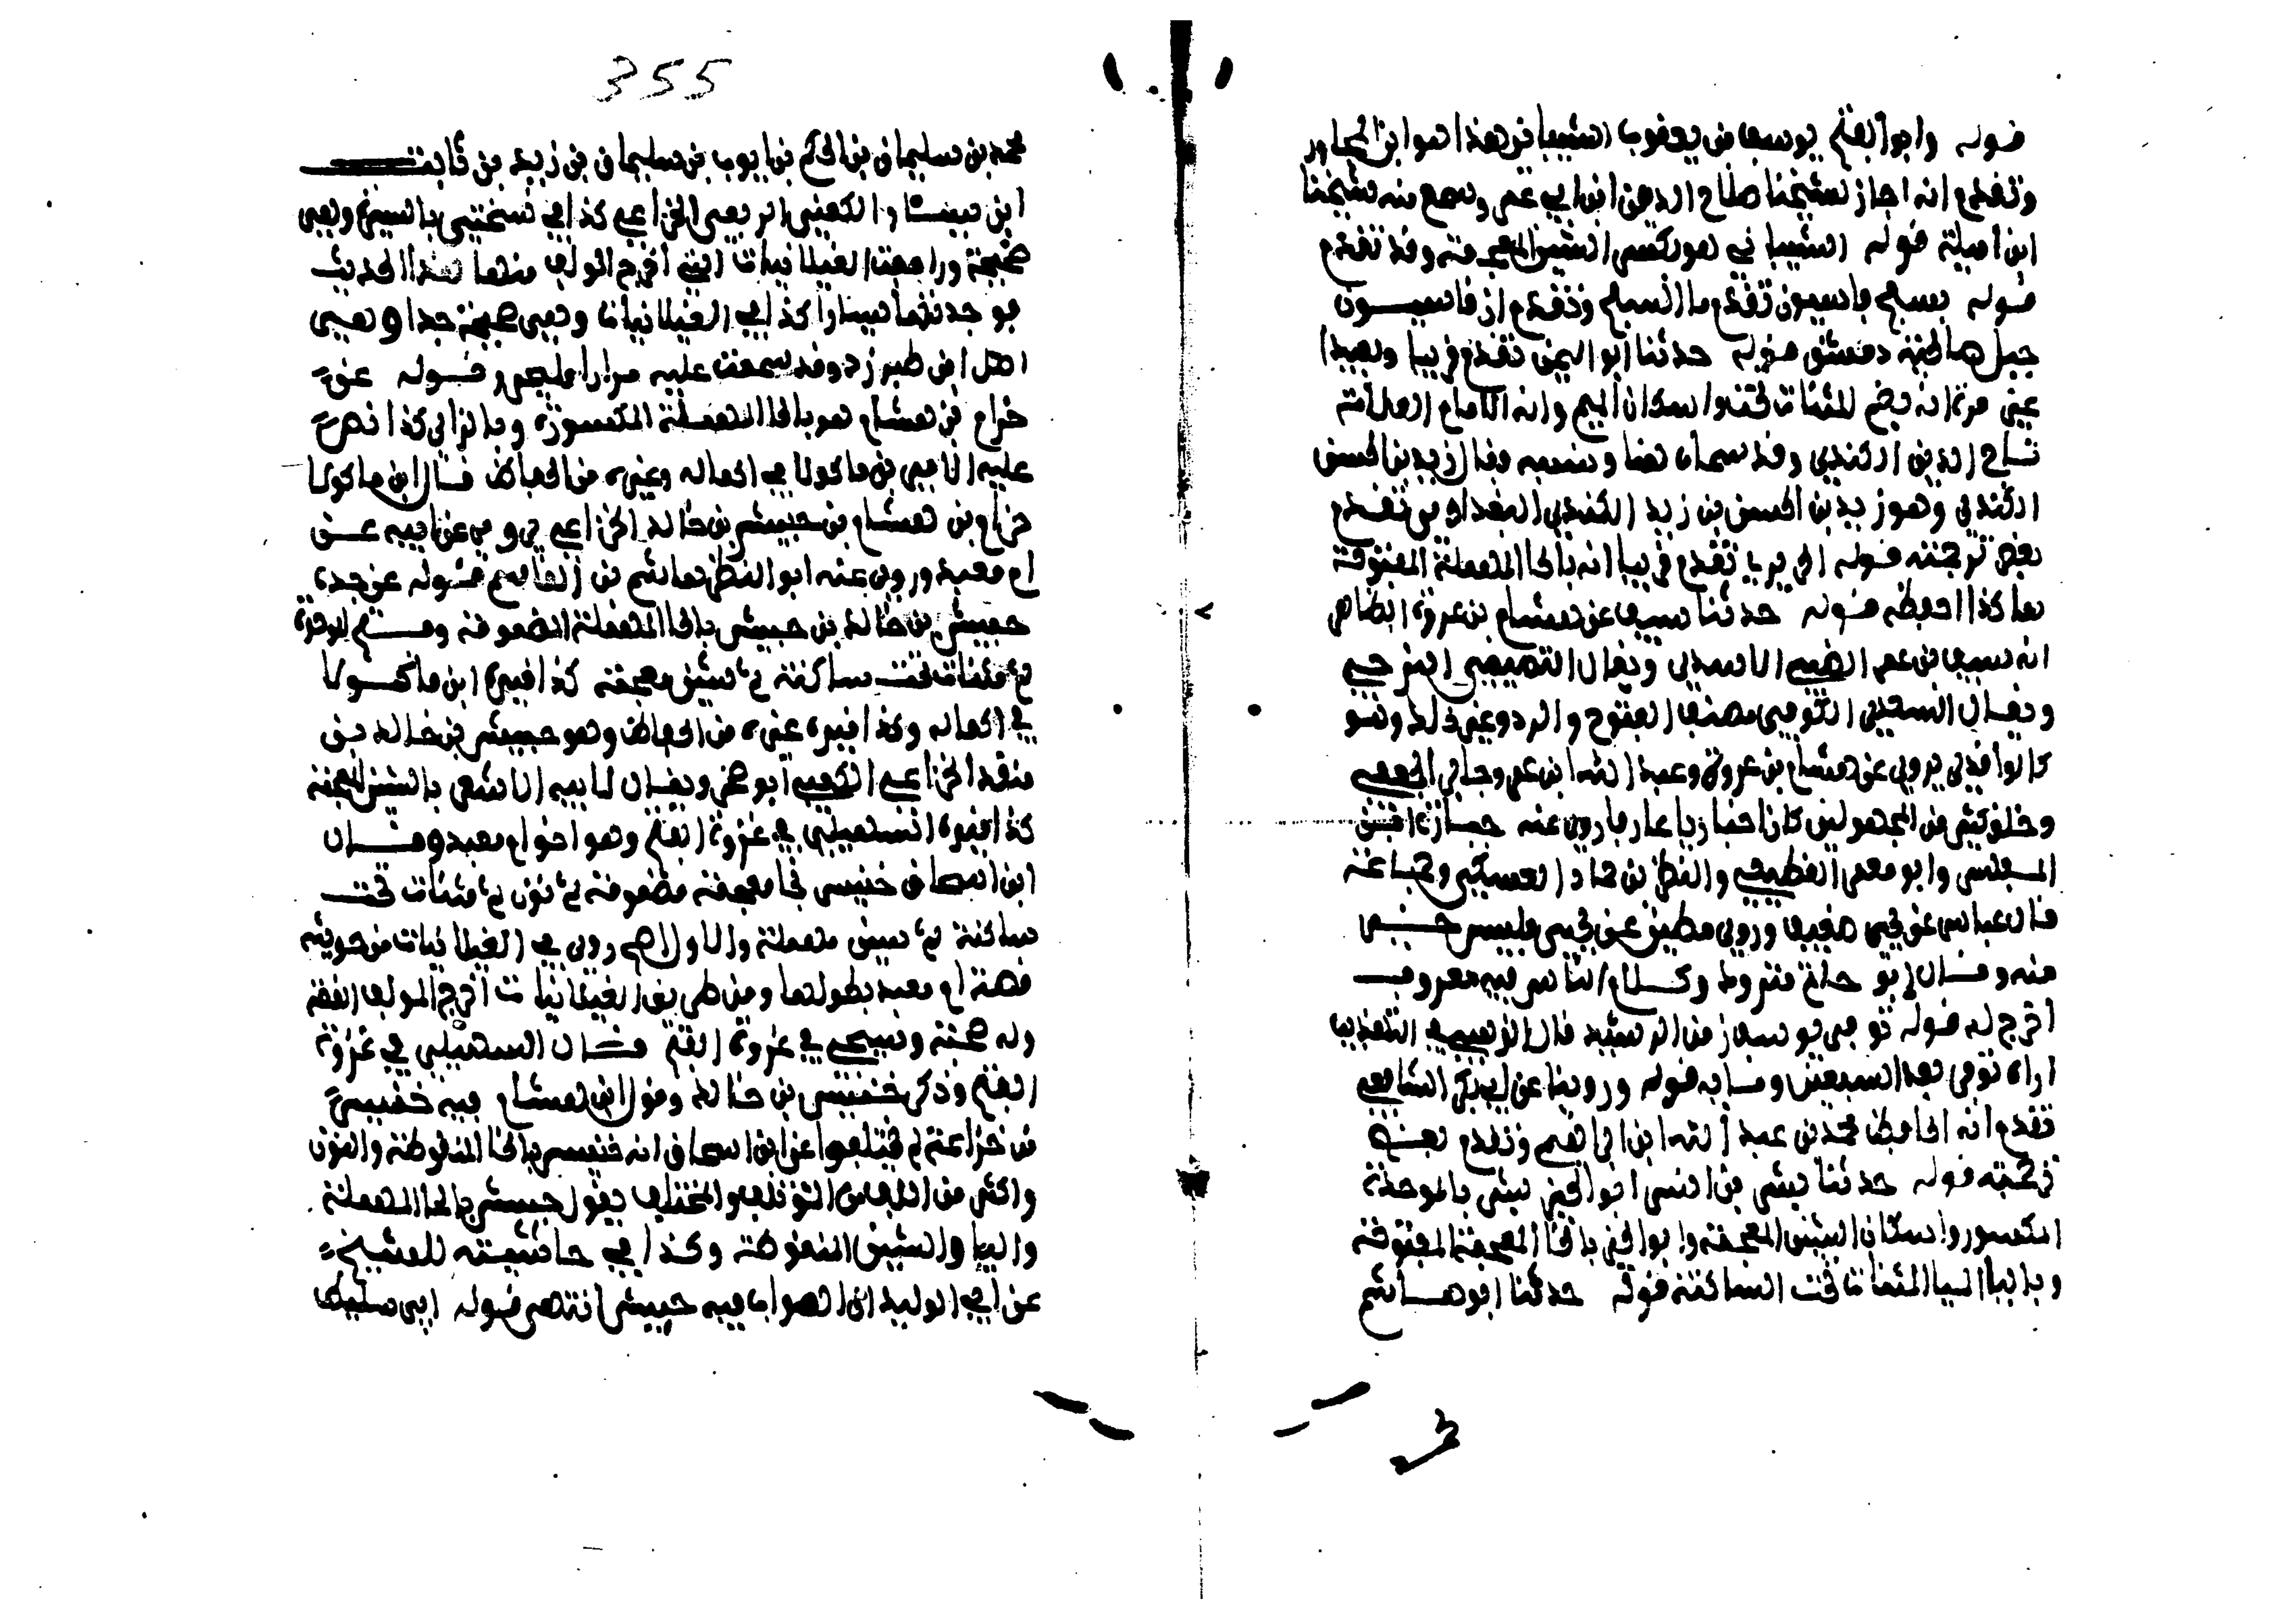 قوله وابو الفتح يوسف بن يعقوب الشيباني هذا هو ابن المجاور
وتقدم انه اجاز لشيخنا صلاح الدين ابن ابي عمر وسمع منه شيخنا
ابن اميلة قوله الشيباني هو بكسر الشين المعجمة وقد تقدم
قوله بسفح قاسيون تقدم ما السفح وتقدم ان قاسيون
جبل صالحية دمشق قوله حدثنا ابو اليمن تقدم قريبا وبعيدا
غير مرة انه بضم المثناة تحت واسكان الميم وانه الامام العلامة
تاج الدين الكندي وقد سماه هنا ونسبه فقال زيد بن الحسن
الكندي وهو زيد بن الحسن بن زيد الكندي البغدادي تقدم
بعض ترجمته قوله الحريري تقدم قريبا انه بالحا المهملة المفتوحة
هنا كذا احفظه قوله حدثنا سيف عن هشام بن عروة الظاهر
انه سيف بن عمر الضبي الاسدي ويقال التميمي البرجمي
ويقال السعدي الكوفي مصنف الفتوح والردة وغير ذلك وهو
كالواقدي يروي عن هشام بن عروة وعبيد الله ابن عمر وجابر الجعفي
وخلق كثير من المجهولين كان اخباريا عارفا روى عنه جبارة ابن
المغلس وابو معمر القطيعي والنضر بن حماد العتكي وجماعة
قال عباس عن يحيى ضعيف وروى مطين عن يحيى فليس خير
منه وقال ابو حاتم متروك وكلام الناس فيه معروف
اخرج له قوله توفي يوسف زمن الرشيد قال الذهبي في التذهيب
اراه توفي بعد السبعين ومـايه قوله وروينا عن ابي بكر الشافعي
تقدم انه الحافظ محمد بن عبد الله ابن ابراهيم وتقدم بعض
ترجمته قوله حدثنا بشر بن انس ابو الخير بشر بالموحدة
المكسورة واسكان الشين المعجمة وابو الخير بالخا المعجمة المفتوحة
وبالياء المثناة تحت الساكنة قوله حدثنا ابو هشام
355
محمد بن سليمان بن الحكم بن ايوب بن سليمان بن زيد بن ثابت
ابن يسار الكعبي الربعي الخزاعي كذا في نسختي بالسيرة وهي
صحيحة وراجعت الغيلانيات التي اخرج المولف منها هذا الحديث
فوجدتها يسارا كذا في الغيلانيات وهي صحيحة جدا وهي
اصل ابن طبرزد وقد سمعت عليه مرارا فليحرر قوله عن
حزام بن هشام هو بالحا المهملة المكسورة وبالزاي كذا نص
عليه الامير بن ماكولا في اكماله وغيره من الحفاظ قال ابن ماكولا
حزام بن هشام بن حبيش بن خالد الخزاعي يروي عن ابيه عن
ام معبد وروى عنه ابو النضر هاشم بن القاسم قوله عن جده
حبيش بن خالد بن حبيش بالحا المهملة المضمومة وفتح الموحدة
ثم مثناة تحت ساكنة ثم شين معجمة كذا قيده ابن ماكولا
في اكماله وكذا قيده غيره من الحفاظ وهو حبيش بن خالد بن
منقذ الخزاعي الكعبي ابو صخر ويقال لابيه الاشعر بالشين المعجمة
كذا قيده السهيلي في غزوة الفتح وهو اخو ام معبد وقال
ابن اسحاق خنيس بخا معجمة مضمومة ثم نون ثم مثناة تحت
ساكنة ثم سين مهملة والاول اصح روى في الغيلانيات من حديثه
قصة ام معبد بطولها ومن طريق الغيلانيات اخرج المولف القصة
وله صحبة وسيجي في غزوة الفتح قال السهيلي في غزوة
الفتح وذكر خنيس بن خالد وقول ابن هشام فيه خنيس
من خزاعة لم يختلفوا عن ابن اسحاق انه خنيس بالخا المنقوطة والنون
واكثر من الف في المؤتلف والمختلف يقول حبيش بالحا المهملة
والبا والشين المنقوطة وكذا في حاشيته للشيخ
عن ابي الوليد ان الصواب فيه حبيش انتهى قوله ابي سليط